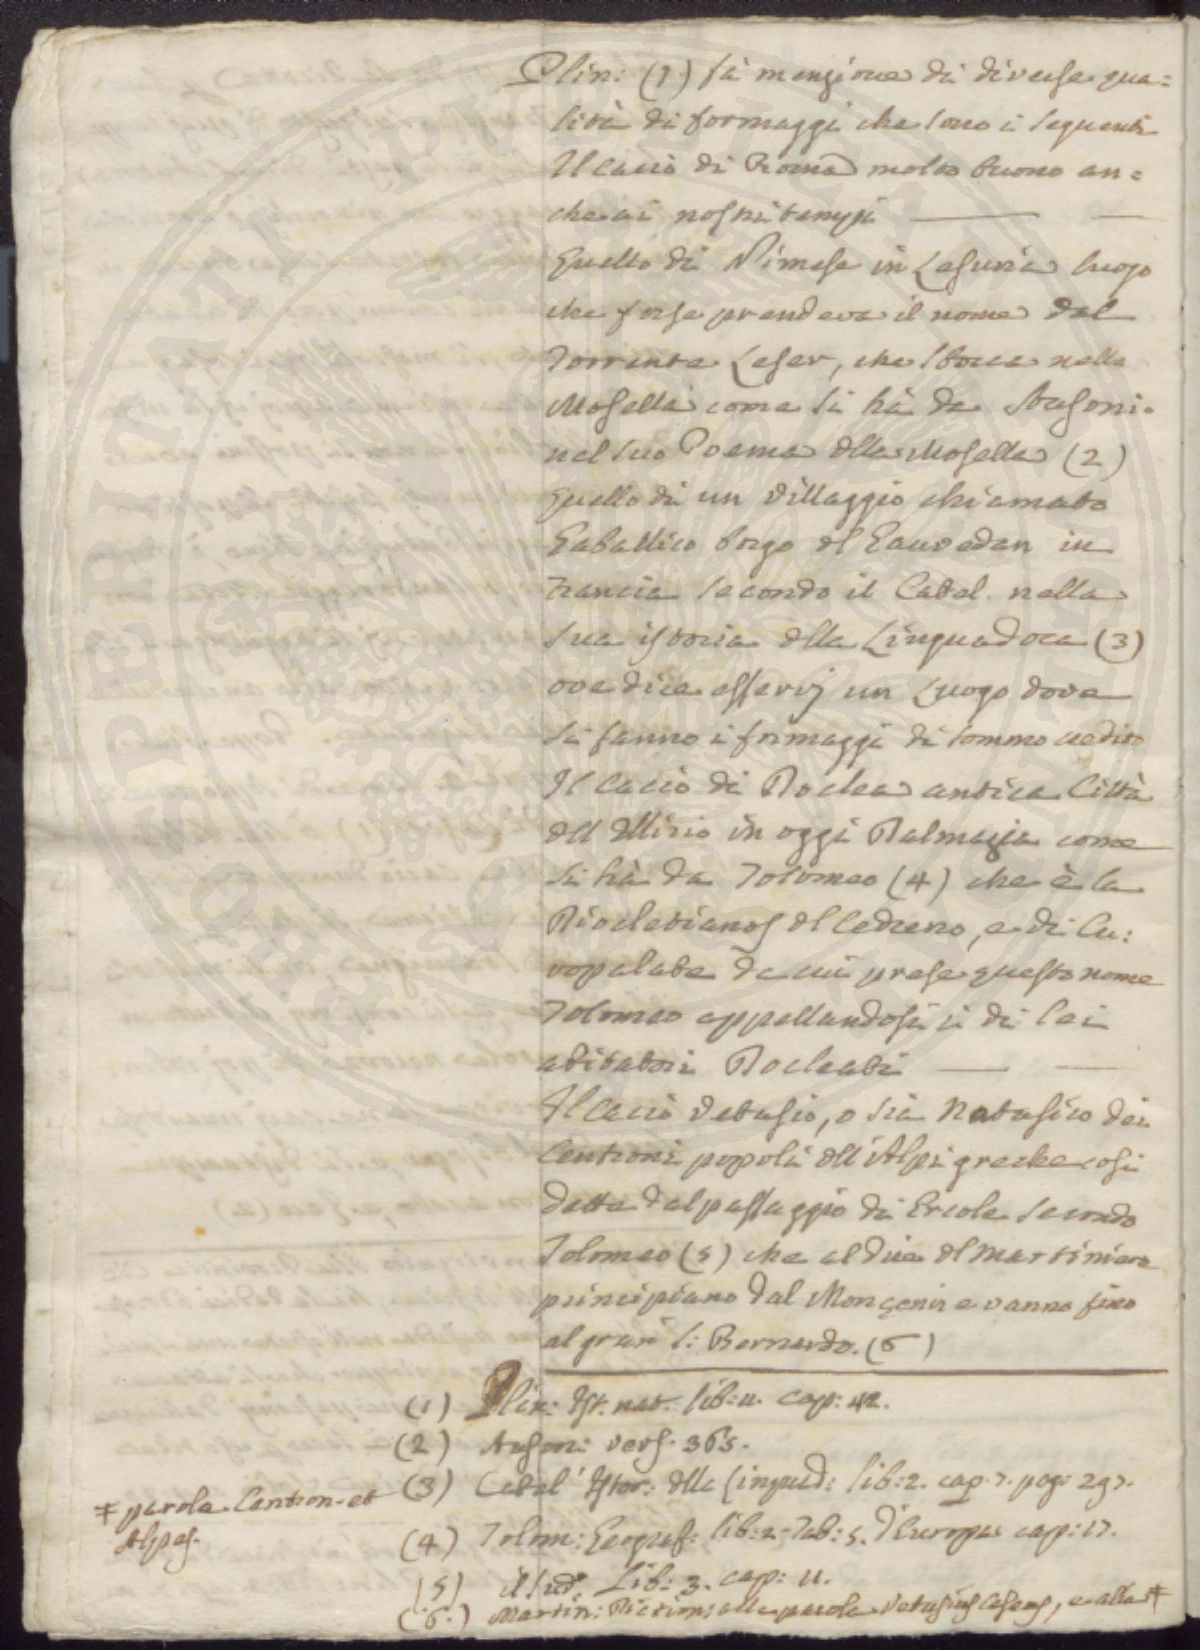 Plin: (1) fà menzione di diverse qua=
lità di formaggi che sono i seguenti
Il cacio di Roma molto buono an=
che ai nostri tempi
Quello di Nimese in Lesuria luogo
che forse prendeva il nome dal
Torrente Leser, che sbocca nella
Mosella come si hà da Ausoni.
nel suo Poema dlla Mosella (2)
Quello di un villaggio chiamato
Gaballico borgo dl Gauvedan in
Francia secondo il Catel. nella
sua istoria dlla Linguadoca (3)
ove dice esservj un Luogo dove
si fanno i formaggi di sommo credito
Il Cacio di Doclea antica Città
dll Illirio in oggi Dalmazia come
si hà da Tolomeo (4) che è la
Diocletianos dl Cedreno, e di Cu:
ropalate da cui prese questo nome
Tolomeo appellandosi i di lei
abitatori Docleati
Il Cacio Vatusio, o sia Vatusico dei
Centroni popoli dll'Alpi greche così
dette dal passaggio di Ercole secondo
Tolomeo (5) che al dire dl Martiniere
principiano dal Monçenis e vanno fino
al gran S: Bernardo. (6)
(1) Plin: Ist. nat. lib: 11. cap: 42.
(2) Auson: vers. 365.
(3) Catel' Istor: dlla Linguad: lib: 2. cap. 7. pag: 297.
(4) Tolom: Geograf: lib: 2. Tab: 5. d'Europa cap: 17.
(5) il sud.° Lib: 3. cap: 11.
(6.) Martin: Diction: alla parola Vatusius Caseus, e alla ‡
‡ parola Centron. et
Alpes.
PROSPERITATI PUBLICAE